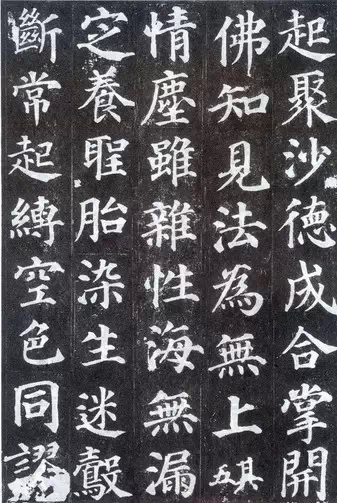 起聚沙德成合掌開
佛知見法為無上其五
情塵雖雜性海無漏
定養聖胎染生迷鷇
斷常起縛空色同謬